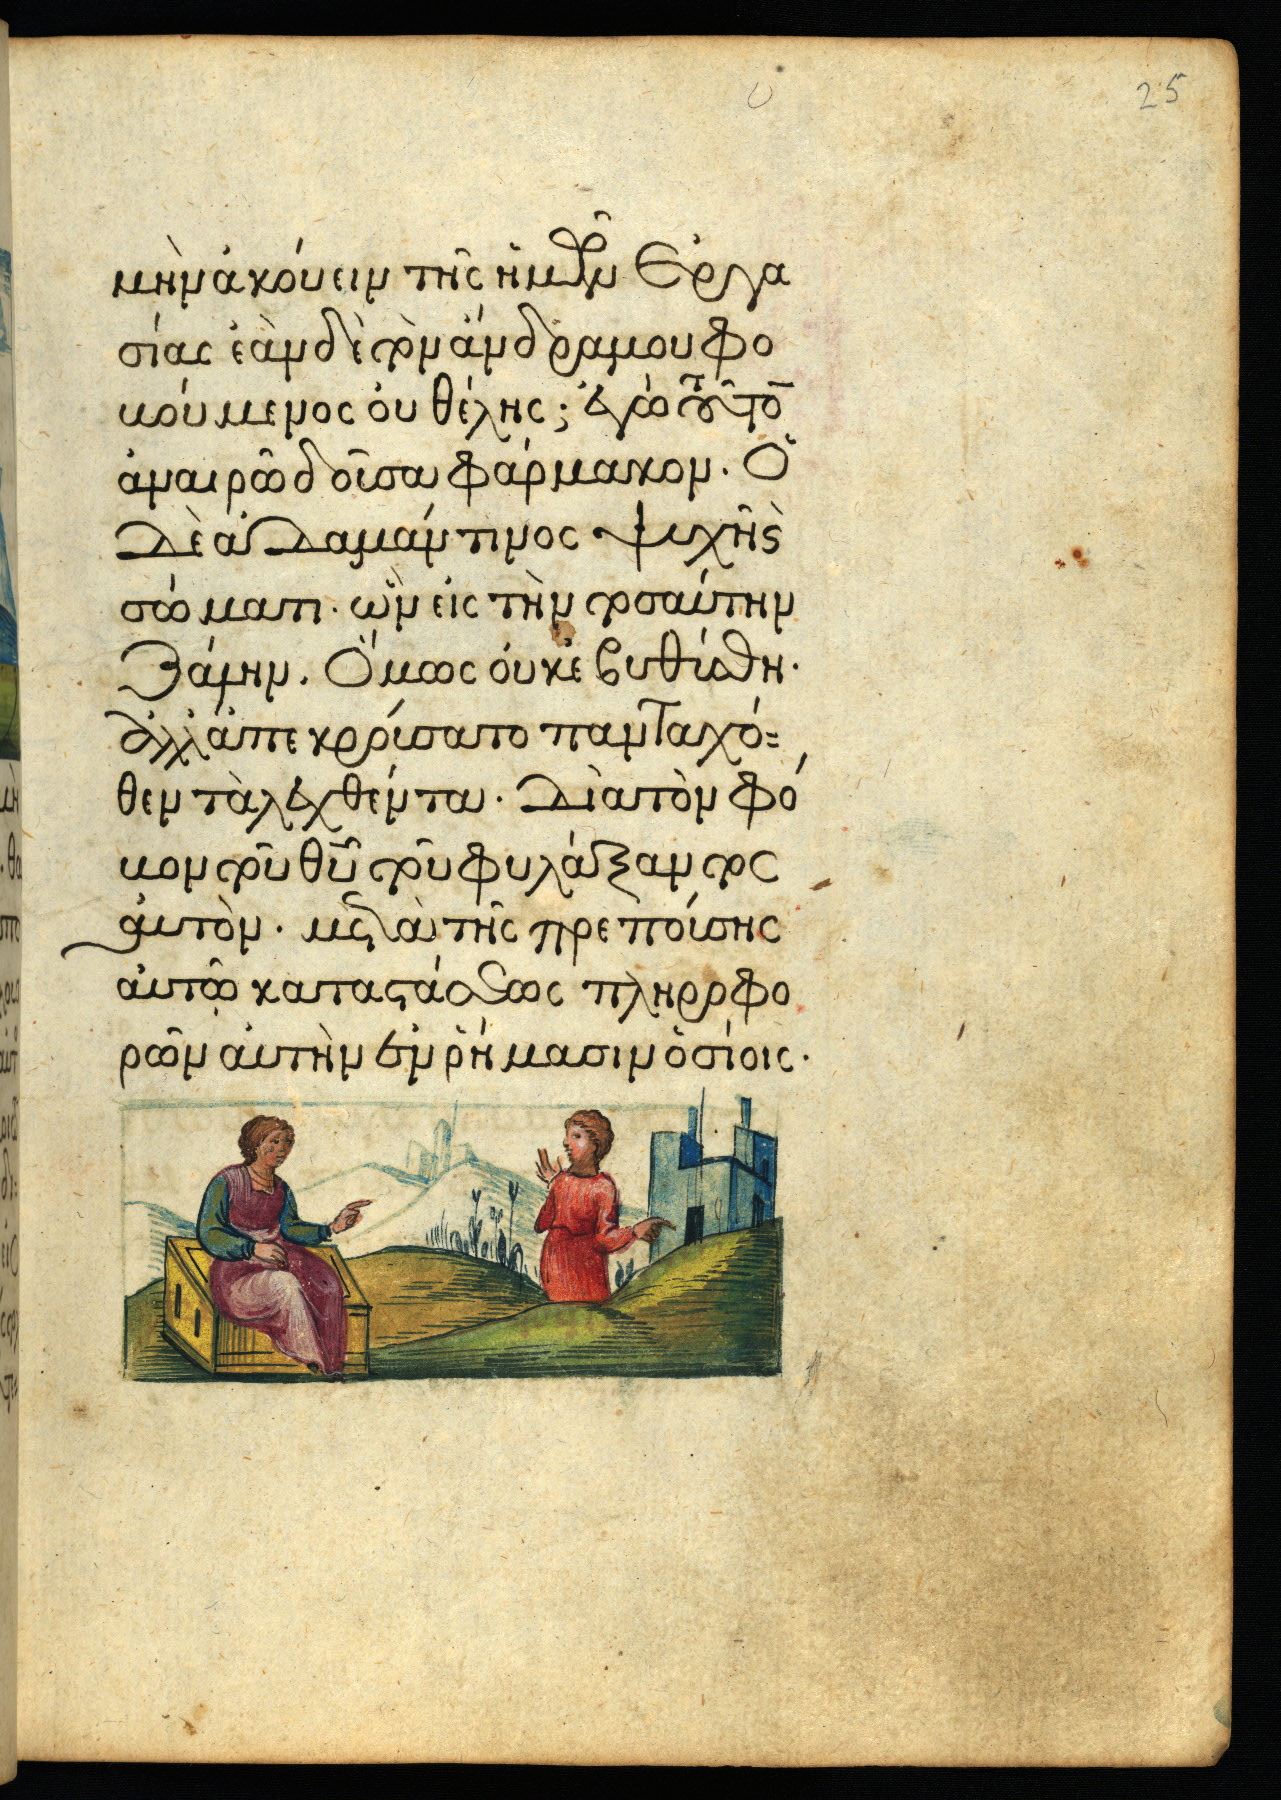 25
μὴν ἀκούειν τῆς ἡμῶν ἐργα
σίας ἐὰν δὲ τὸν ἄνδρα μου φο
βούμενος οὐ θέλης; ἐγὼ τοῦτον
ἀναιρῶ δοῦσα φάρμακον. Ὁ
δὲ ἀδαμάντινος ψυχῆς
σώματι. ὢν εἰς τὴν τοσαύτην
ζάλην. Ὅμως οὐκ ἐβυθίσθη.
ἀλλ' ἀπεκρίσατο πανταχό=
θεν τὰ λεχθέντα. Διὰ τὸν φό
βον τοῦ θῡ τοῦ φυλάξαντος
αὐτὸν. μετὰ τῆς πρεπούσης
αὐτῶ καταστάσεως πληροφο
ρῶν αὐτὴν ἐν ῥήμασιν ὁσίοις.